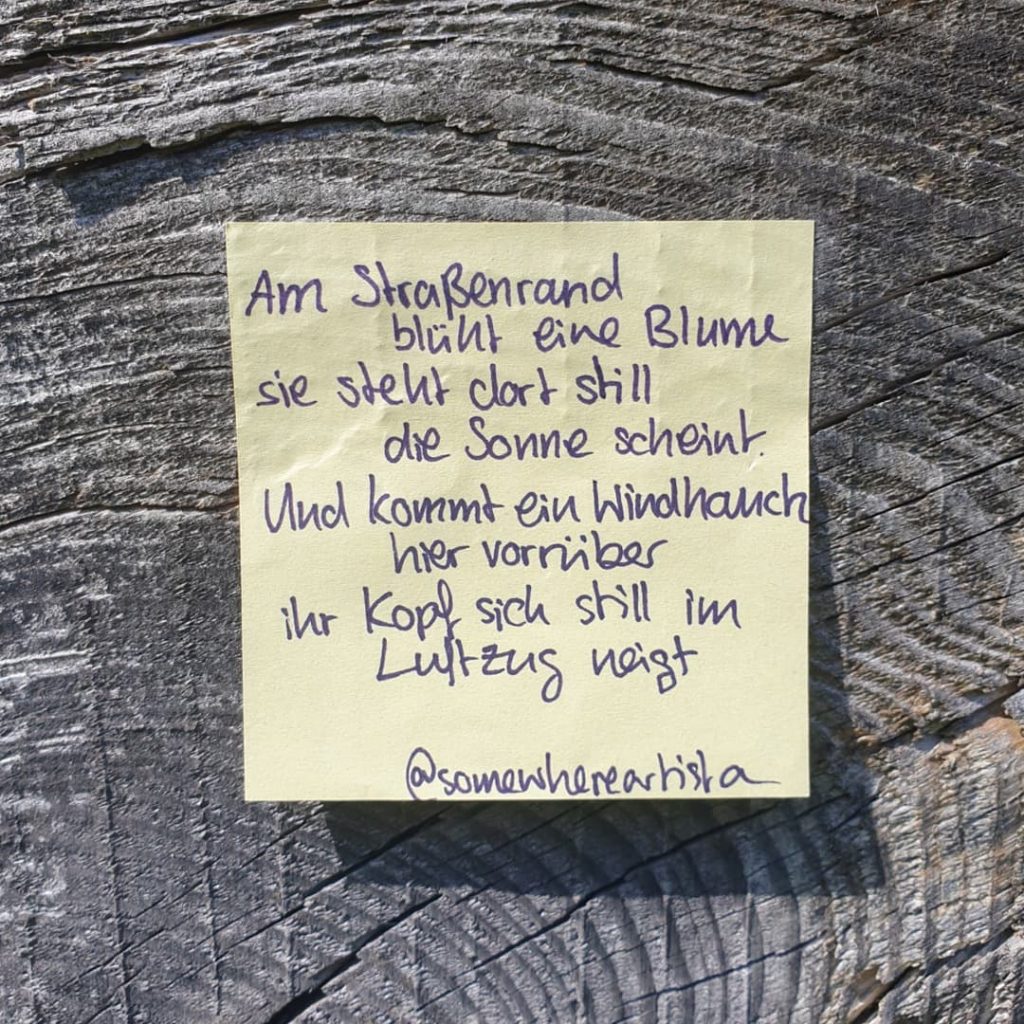 Am Straßenrand
blüht eine Blume
sie steht dort still
die Sonne scheint.
Und kommt ein Windhauch
hier vorrüber
ihr Kopf sich still im
Luftzug neigt
@somewhereartista